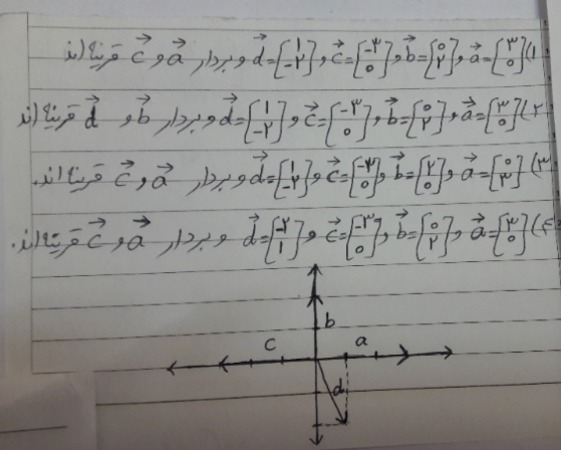 ۱) a⃗=[۳ ۰] و b⃗=[۰ ۲] و c⃗=[-۳ ۰] و d⃗=[۱ -۲] و بردار a⃗ و c⃗ قرینه اند
۲) a⃗=[۳ ۰] و b⃗=[۰ ۲] و c⃗=[-۳ ۰] و d⃗=[۱ -۲] و بردار b⃗ و d⃗ قرینه اند
۳) a⃗=[۰ ۳] و b⃗=[۲ ۰] و c⃗=[-۳ ۰] و d⃗=[۱ -۲] و بردار a⃗ و c⃗ قرینه اند.
۴) a⃗=[۳ ۰] و b⃗=[۰ ۲] و c⃗=[-۳ ۰] و d⃗=[-۲ ۱] و بردار a⃗ و c⃗ قرینه اند.
b
c a
d